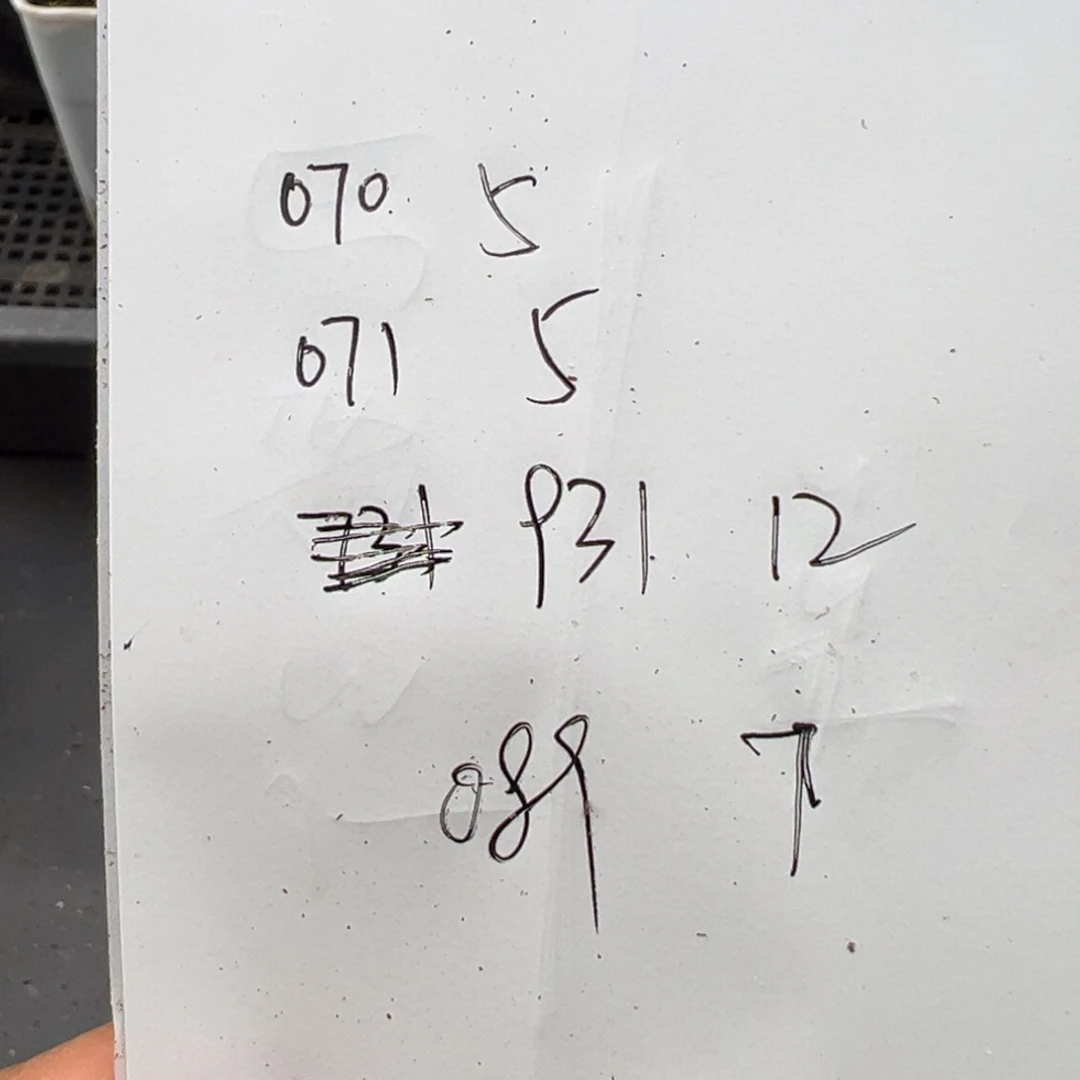 070 5
071 5
931 12
089 7